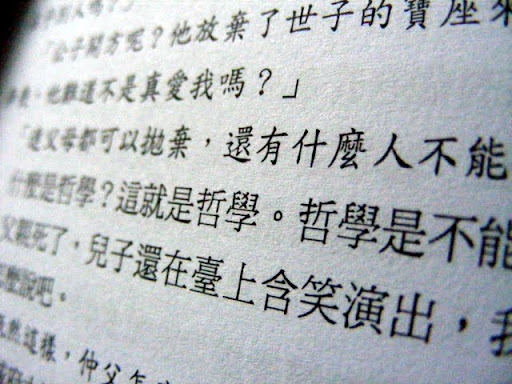 人嗎？」
「公子開方呢？他放棄了世子的寶座來
，他難道不是真愛我嗎？」
「連父母都可以拋棄，還有什麼人不能
什麼是哲學？這就是哲學。哲學是不能
父親死了，兒子還在臺上含笑演出，我
麼說吧。
然這樣，仲父怎